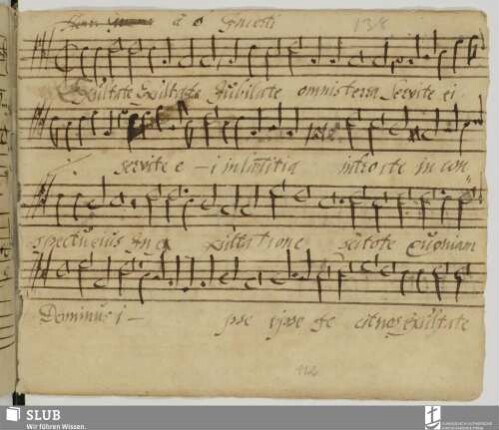 â 6
Exultate Exultate Jubilate omnis terra servite ei
servite e - i in lætitia introite in con
spectu eius In ex ultatione scitote Quoniam
Dominus i - pse ipse fe cit nos Exultate
112
SLUB
Wir führen Wissen.